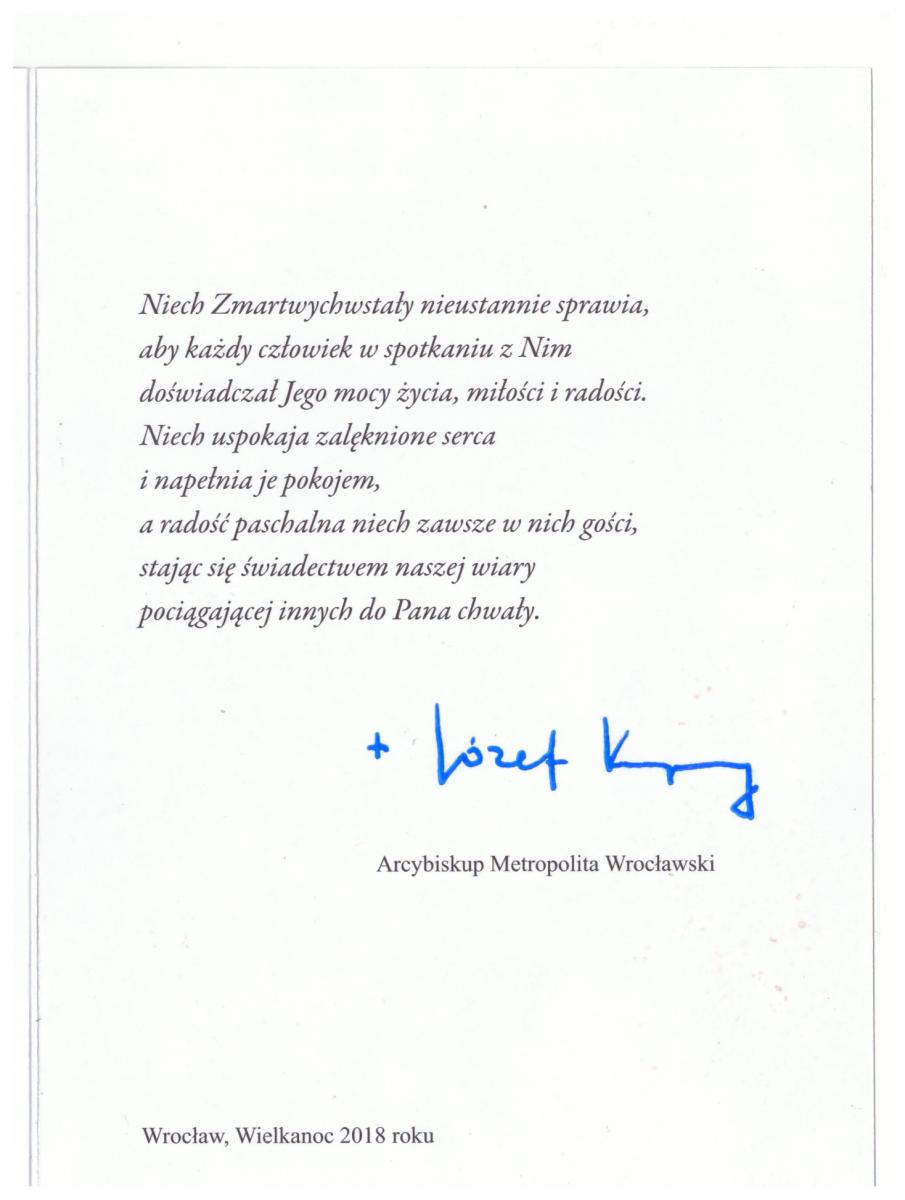 Niech Zmartwychwstały nieustannie sprawia,
aby każdy człowiek w spotkaniu z Nim
doświadczał Jego mocy życia, miłości i radości.
Niech uspokaja zalęknione serca
i napełnia je pokojem,
a radość paschalna niech zawsze w nich gości,
stając się świadectwem naszej wiary
pociągającej innych do Pana chwały.
+ Józef
Arcybiskup Metropolita Wrocławski
Wrocław, Wielkanoc 2018 roku